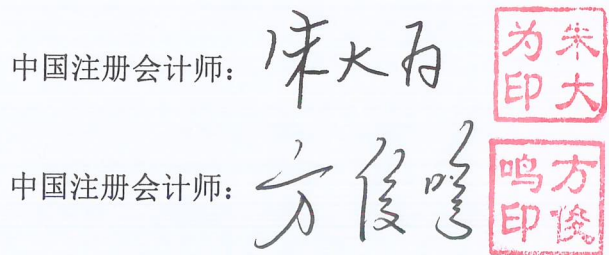 中国注册会计师：朱大为 朱大为印
中国注册会计师：方俊鸣 方俊鸣印